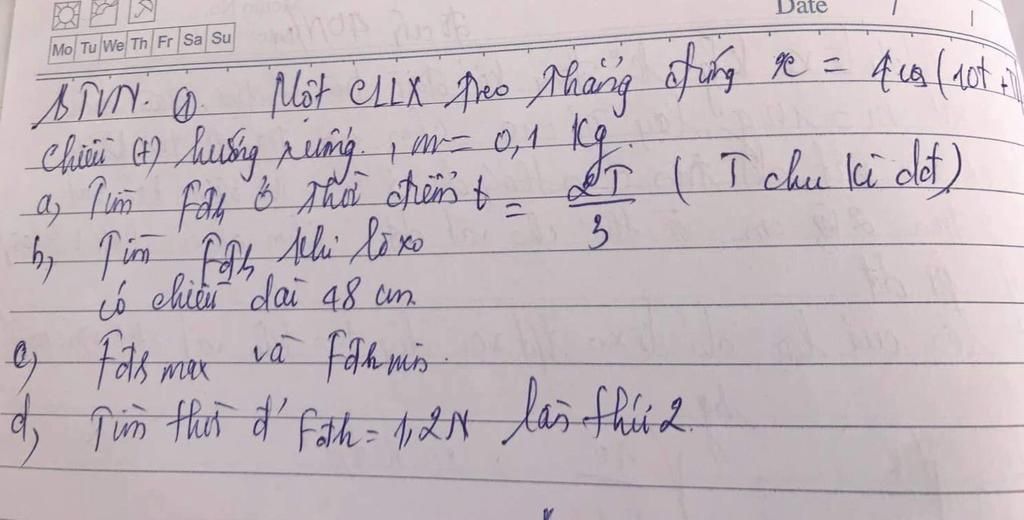 Date
Mo Tu We Th Fr Sa Su
BTVN. ① Một CLLX treo thẳng đứng x = 4cos(10t +
chiều (+) hướng xuống. , m = 0,1 Kg
a, Tìm Fđh ở thời điểm t = 2T/3 ( T chu kì dđ)
b, Tìm Fđh khi lò xo
có chiều dài 48 cm
c, Fđh max và Fđh min.
d, Tìm thời đ' Fđh = 1,2N lần thứ 2.